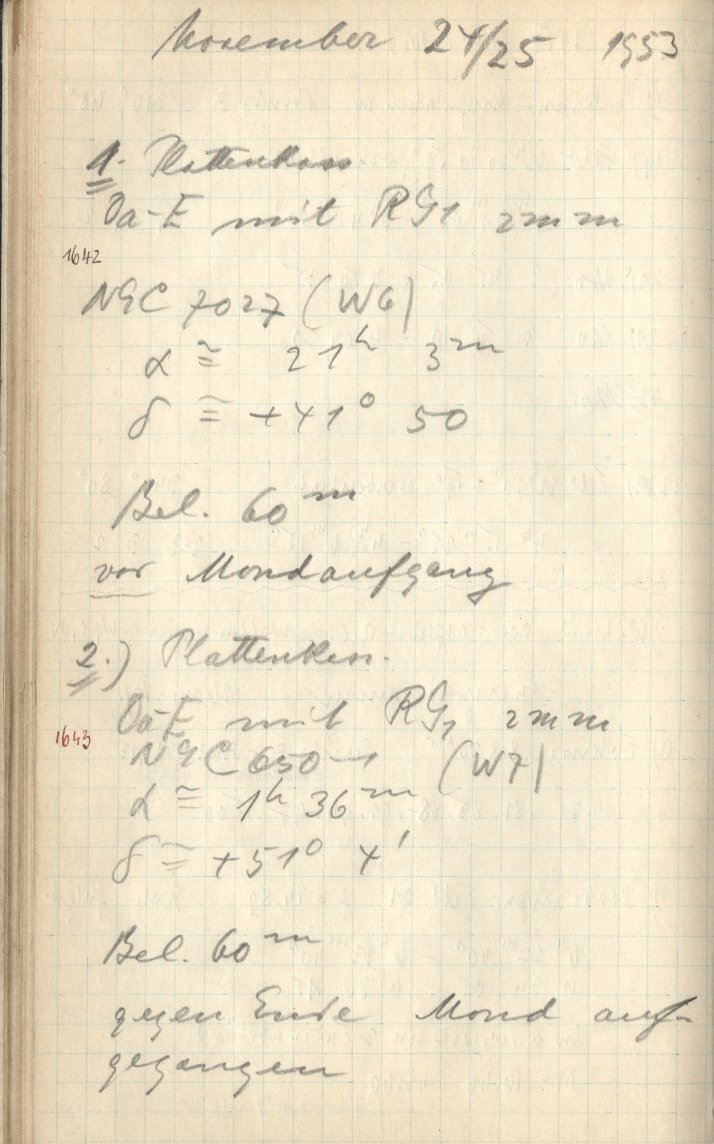 November 24/25 1953
1. Plattenkass
Oa-E mit RG1 2mm
1642
NGC 7027 (W6)
α ≅ 21h 3m
δ ≅ +41° 50
Bel. 60m
vor Mondaufgang
2.) Plattenkass.
Oa-E mit RG1 2mm
1643
NGC 650-1 (W7)
α ≅ 1h 36m
δ ≅ +51° 4'
Bel. 60m
gegen Ende Mond auf-
gegangen